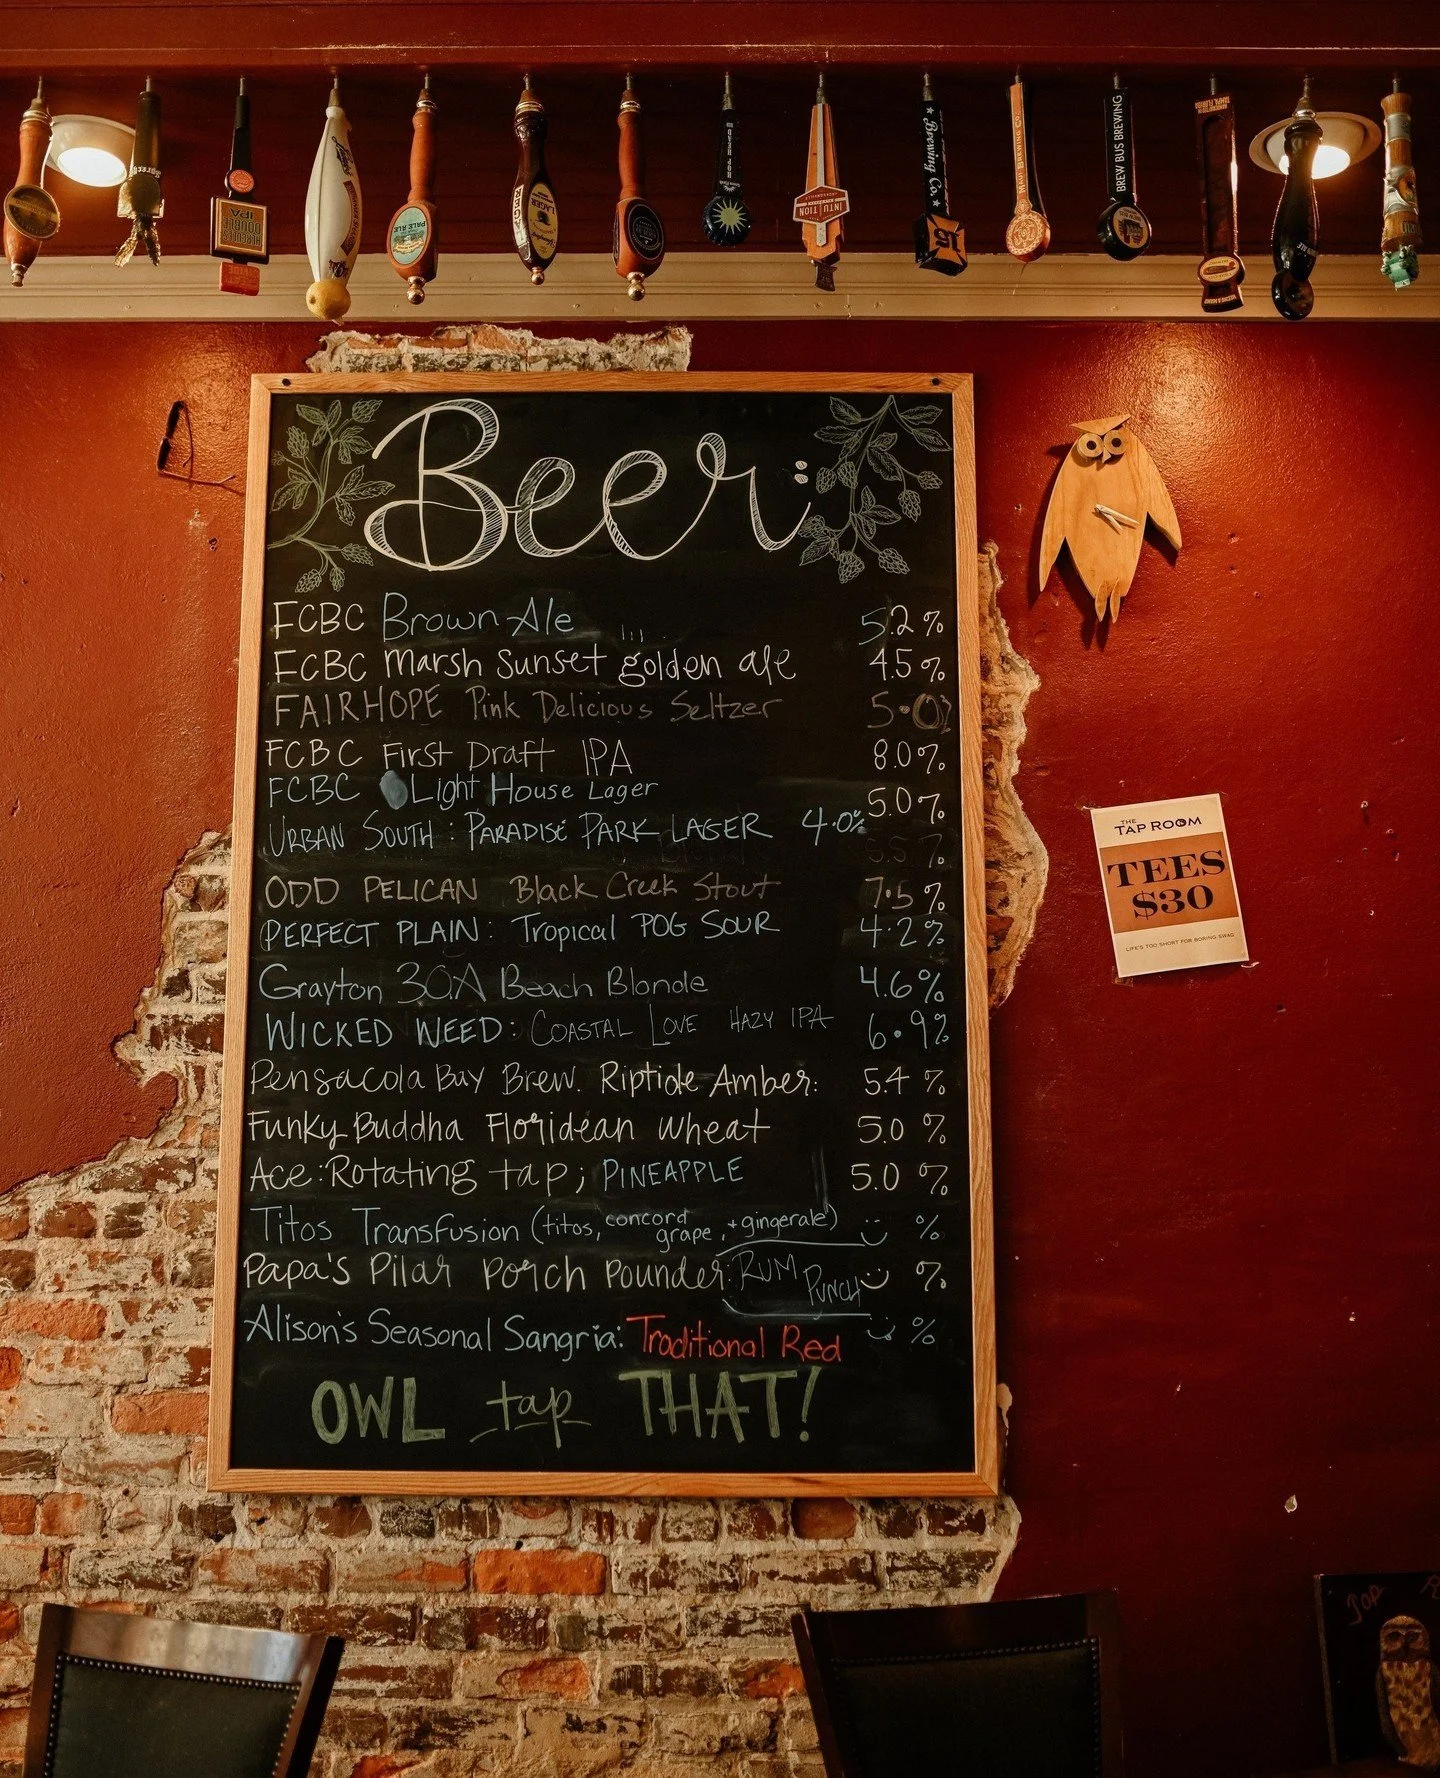 DOUBLE
IPA
PALE ALE
LAGER
HOP HEAD
INTUITION
Brewing Co.
BREW BUS BREWING
TAMPA, FLORIDA
Beer:
FCBC Brown Ale 5.2 %
FCBC Marsh Sunset golden ale 4.5 %
FAIRHOPE Pink Delicious Seltzer 5.0%
FCBC First Draft IPA 8.0%
FCBC Light House Lager 5.0%
URBAN SOUTH: PARADISE PARK LAGER 4.0%
ODD PELICAN Black Creek Stout 7.5 %
PERFECT PLAIN: Tropical POG SOUR 4.2%
Grayton 30A Beach Blonde 4.6%
WICKED WEED: COASTAL LOVE HAZY IPA 6.9%
Pensacola Bay Brew. Riptide Amber: 5.4 %
Funky Buddha Floridean wheat 5.0 %
Ace: Rotating tap; PINEAPPLE 5.0 %
Titos Transfusion (titos, concord grape, + gingerale) %
Papa's Pilar Porch Pounder: RUM PUNCH %
Alison's Seasonal Sangria: Traditional Red %
OWL tap THAT!
THE
TAP ROOM
TEES
$30
LIFE'S TOO SHORT FOR BORING SWAG